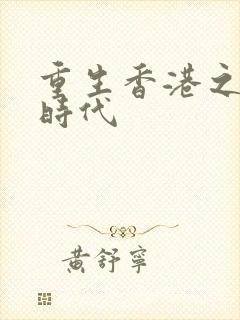 重生香港之
時代
黃舒寧